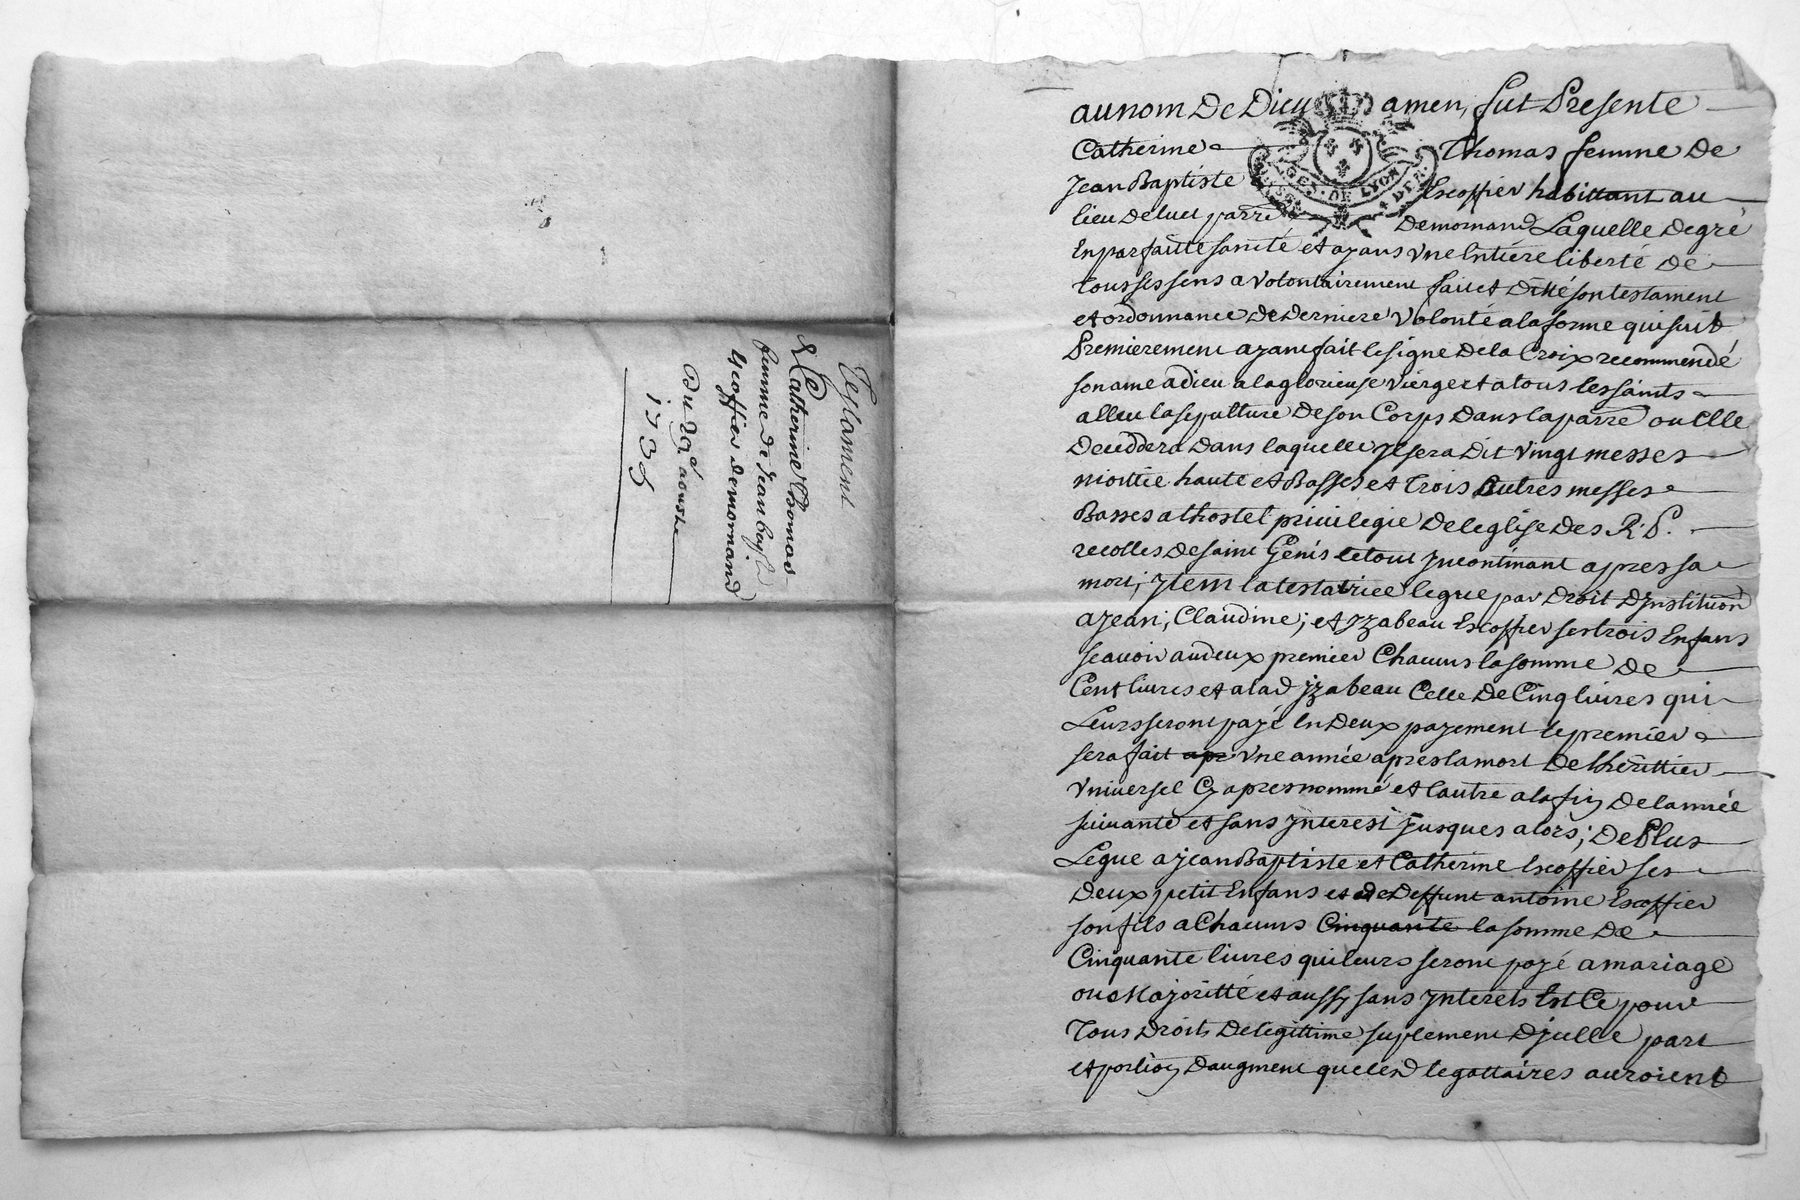 Testament
de Catherine Thomas
femme de Jean bap.te
Escoffier de mornand
Du 29.e aoust
1736
au nom De Dieu amen, fut Presente
Catherine Thomas femme De
Jean Baptiste Escoffier habittant au
lieu de luet parre De mornand Laquelle De gré
En parfaitte santé et ayans Vne Entiére liberté De
tous ses sens a volontairement fait et Ditté son testament
et ordonnance De Derniere Volonté a la forme qui suit
Premierement ayant fait le signe De la Croix recommendé
son ame a dieu a la glorieuse vierge et a tous les saints
alleu la sepulture De son Corps Dans la parre ou Elle
Deceddera Dans laquelle Jl sera Dit vingt messes
moittié haute et Basses et trois Autres messes
Basses a lhostel priuilegié De leglise Des R. P.
recolles de saint Genis le tout Jncontinant apres sa
mort; Jtem la testatrice legue par Droit DJnstitution
a Jean, Claudine, et Jzabeau Escoffier ses trois Enfans
scauoir au deux premier Chacuns la somme De
Cent liures et a lad Jzabeau Celle De Cinq liures qui
Leurs seront payé En Deux payement le premier
sera fait apr Vne année apres la mort De lhérittier
Vniuersel Cy apres nommé et lautre a la fin De lannée
suiuante et sans Jnterest Jusques alors; De Plus
Legue a Jean Baptiste et Catherine Escoffier ses
Deux petit Enfans et de Deffunt antoine Escoffier
son fils a Chacuns Cinquante la somme De
Cinquante liures qui leurs seront payé a mariage
ou Majoritté et aussy sans Jnterets Est Ce pour
Tous Droits De legittime suplement DJcelle part
et portion Daugment que lesd legattaires auroient
GEN. DE LYON